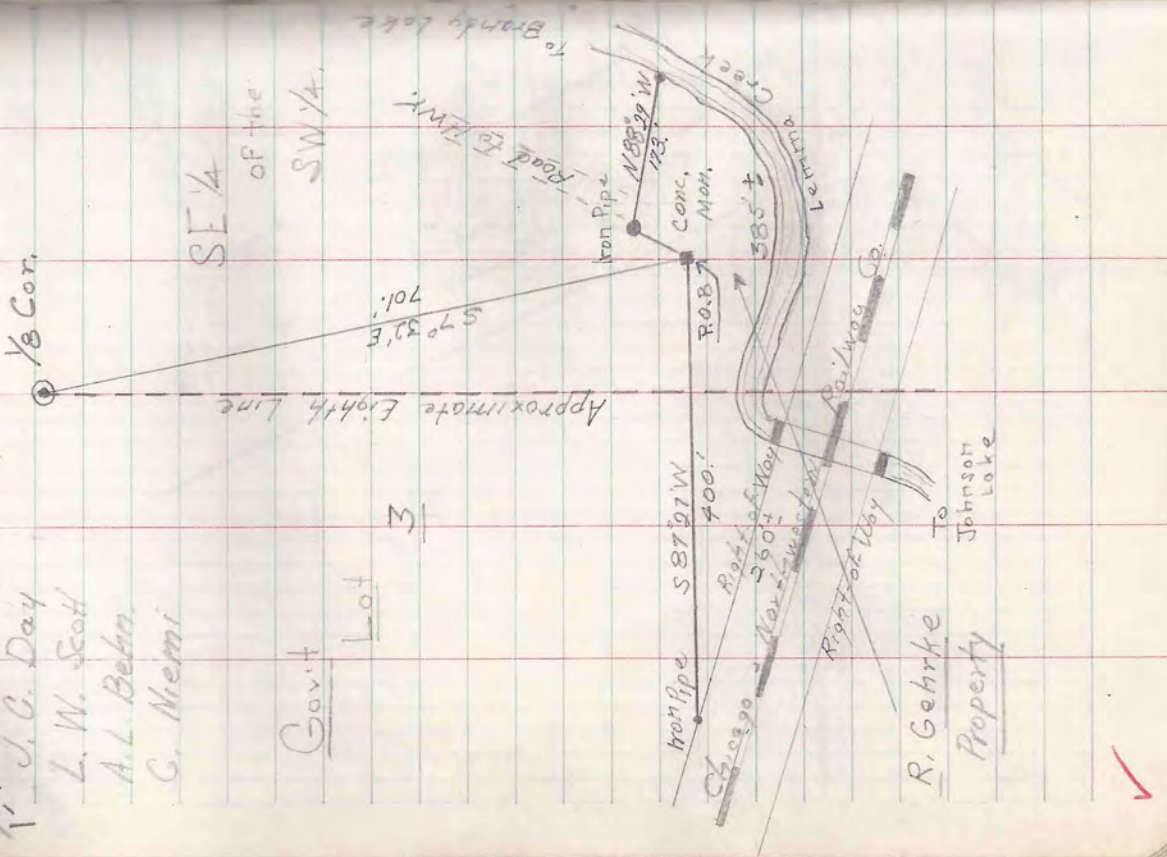 J. C. Day
L. W. Scott
A. L. Behn.
G. Niemi
1/8 Cor.
SE 1/4
of the
SW 1/4.
Gov't
Lot
3
S 7° 32' E
701.'
Approximate Eighth Line
To
Brandy Lake
Road to HWY.
Iron Pipe
N 88° 29' W
173.'
Conc.
Mon.
P.O.B.
S 87° 27' W
400.'
Iron Pipe
385' ±
Lemma Creek
Right-of-Way
260' ±
Chicago & Northwestern Railway Co.
Right-of-Way
To
Johnson
Lake
R. Gehrke
Property